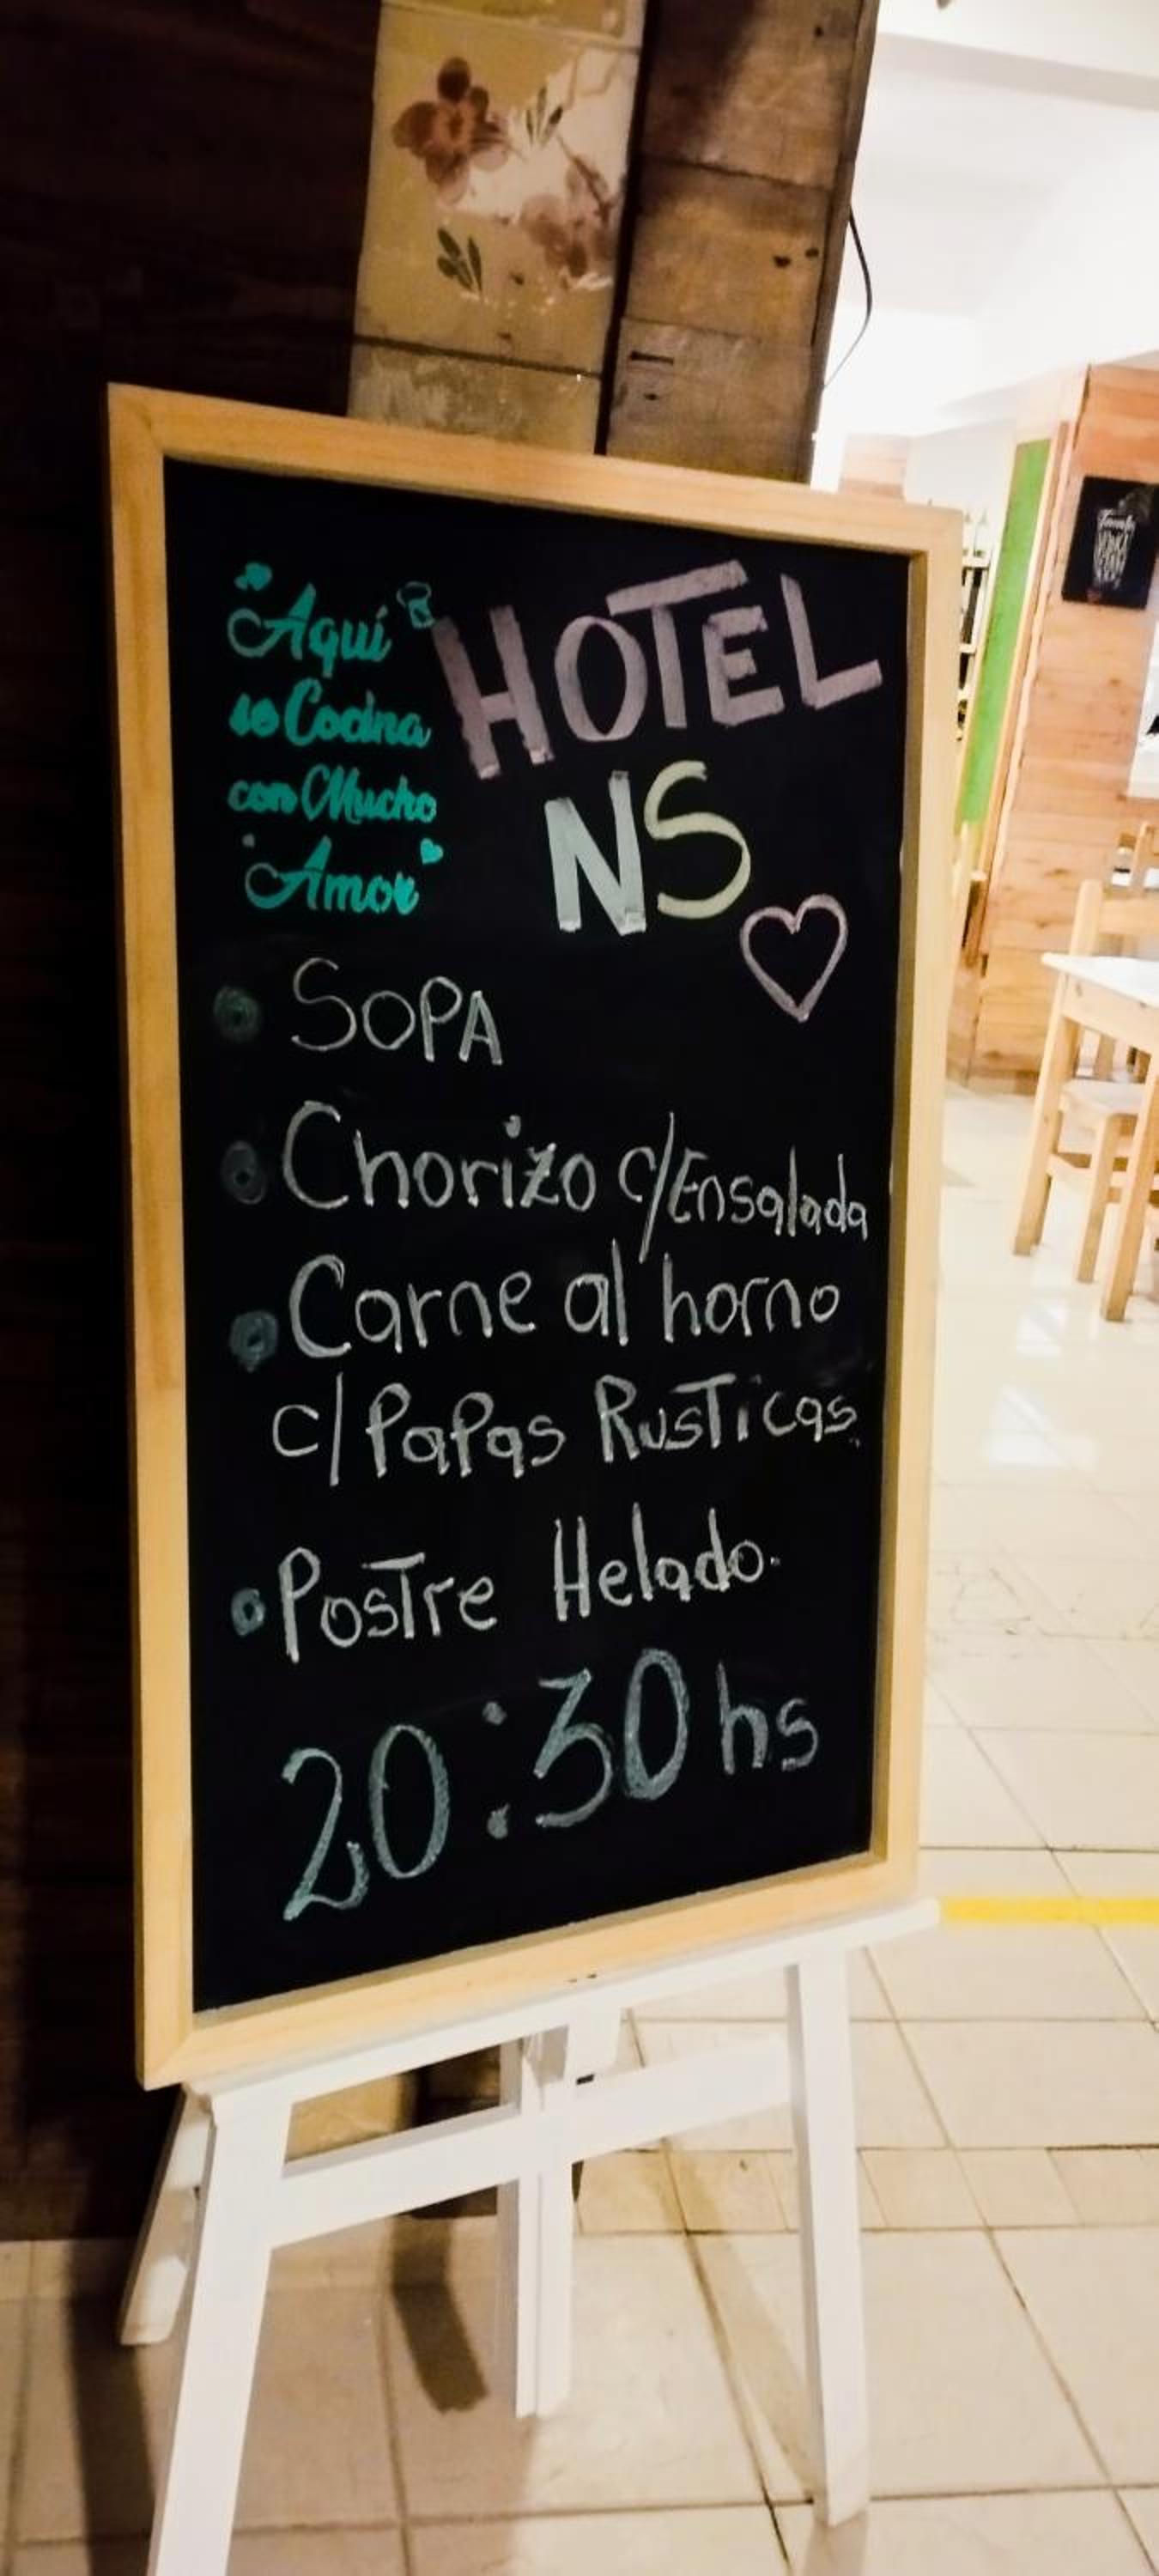 Aquí
se Cocina
con Mucho
Amor
HOTEL
NS
SOPA
Chorizo c/Ensalada
Carne al horno
c/Papas RusTicas.
PosTre Helado.
20:30 hs